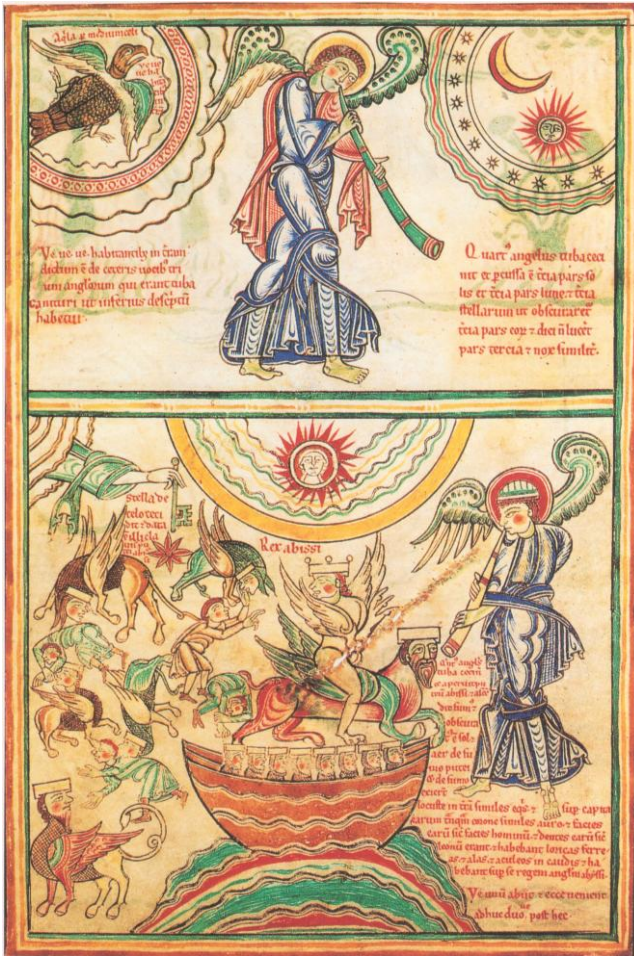 Aq̄la p̄ medium celi
ve ue
ue ha
Ve ue ue habitantib; in t̄ram
dictum ē de ceteris uocib; tri
um angl̄orum qui erant tuba
canituri ut inferius desc̄ptū
habetur.
Quart᷒ angelus tuba ceci
nit et ꝑcussa ē t̄cia pars so
lis et t̄cia pars lune ⁊ t̄cia
stellarum ut obscuraret᷑
t̄cia pars eoꝝ ⁊ diei n̄ lucēt
pars tercia ⁊ nox similit̄.
stella de
celo ceci
dit ⁊ data
ē illi cla
Rex abissi
tuba cecin
it ⁊ apuit put
eū abissi ⁊ asc̄e
dit fum᷒ ⁊
obscura
t᷒ ē sol ⁊
aer de fu
mo putei
⁊ de fumo
exierē
locuste in t̄rā similes eq̄s ⁊ sup capita
earum tāq̄m corone similes auro ⁊ facies
earū sic̄ facies hominū ⁊ dentes earū sic̄
leonū erant ⁊ habebant loricas ferre
as ⁊ alas ⁊ aculeos in caudis ⁊ ha
bebant sup se regem angl̄m abissi.
Ve unū abiit ⁊ ecce ueniunt
adhuc duo ue post hec